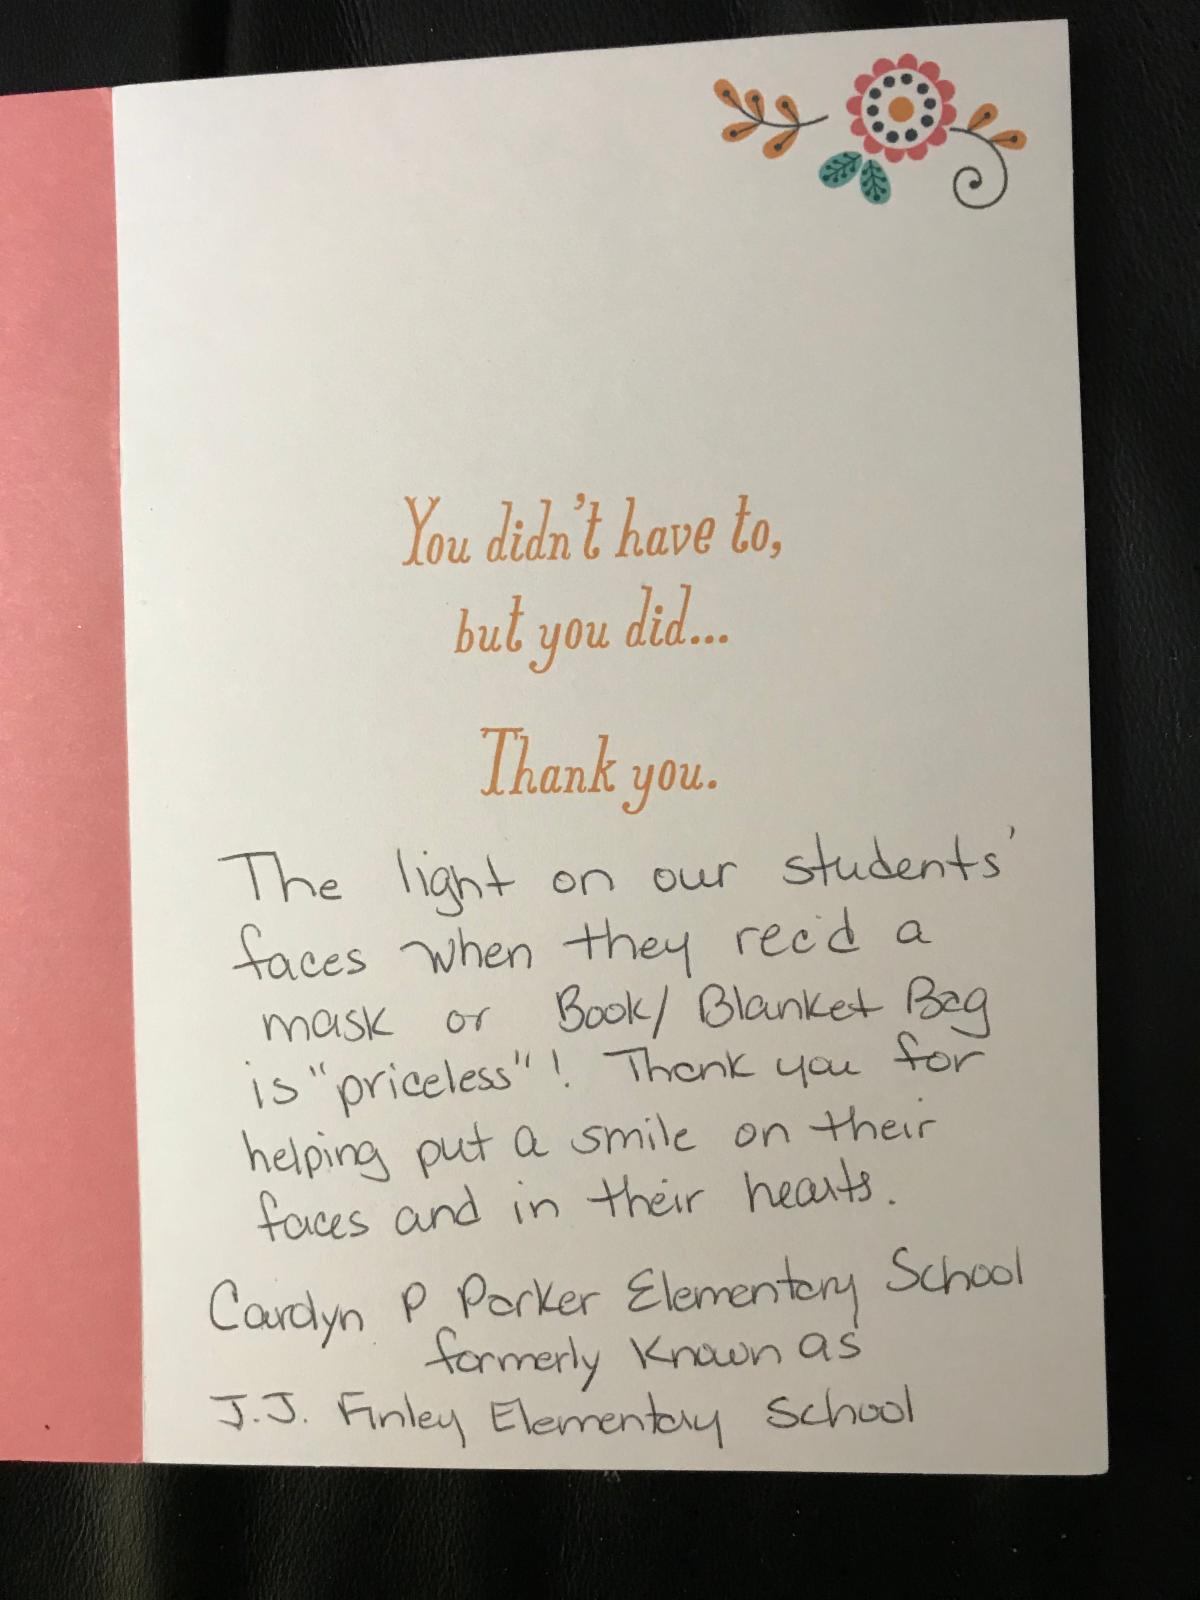 You didn't have to,
but you did...
Thank you.
The light on our students'
faces when they rec'd a
mask or Book/ Blanket Bag
is "priceless"! Thank you for
helping put a smile on their
faces and in their hearts.
Carolyn P Parker Elementary School
formerly Known as
J.J. Finley Elementary School